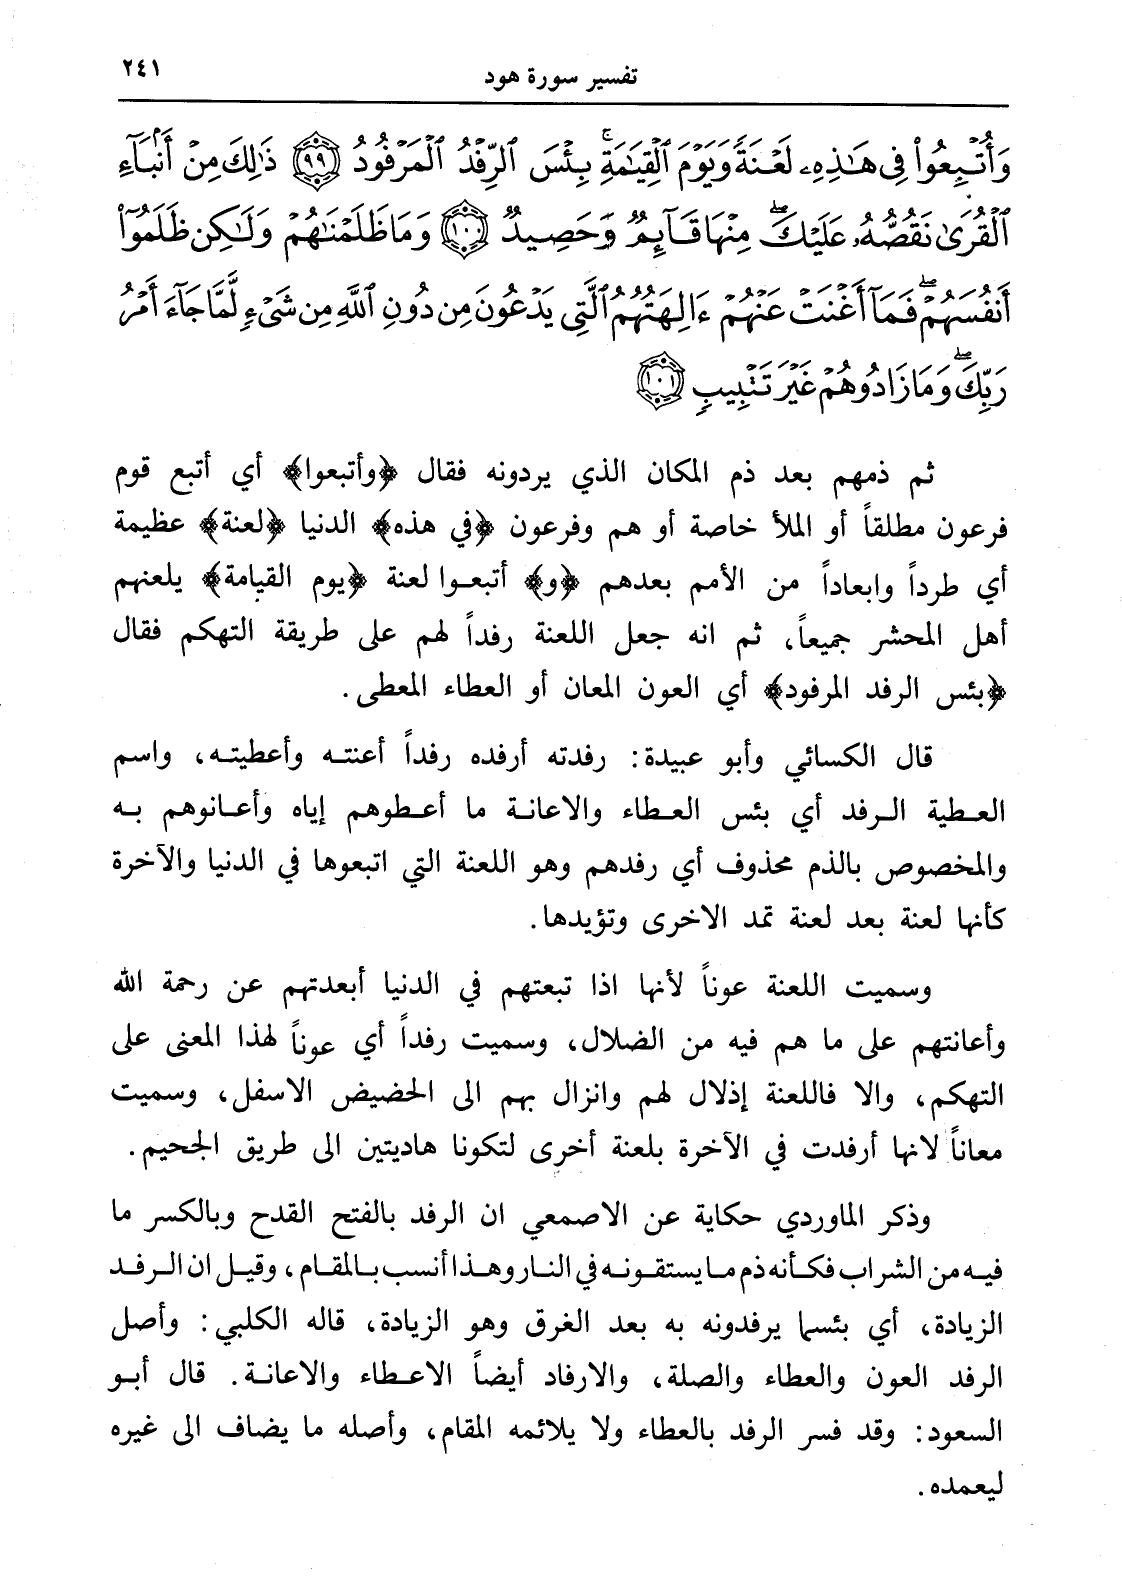 تفسير سورة هود ٢٤١
وَأُتْبِعُوا۟ فِى هَـٰذِهِۦ لَعْنَةً وَيَوْمَ ٱلْقِيَـٰمَةِ ۚ بِئْسَ ٱلرِّفْدُ ٱلْمَرْفُودُ ٩٩ ذَٰلِكَ مِنْ أَنۢبَآءِ
ٱلْقُرَىٰ نَقُصُّهُۥ عَلَيْكَ ۖ مِنْهَا قَآئِمٌ وَحَصِيدٌ ١٠٠ وَمَا ظَلَمْنَـٰهُمْ وَلَـٰكِن ظَلَمُوٓا۟
أَنفُسَهُمْ ۖ فَمَآ أَغْنَتْ عَنْهُمْ ءَالِهَتُهُمُ ٱلَّتِى يَدْعُونَ مِن دُونِ ٱللَّهِ مِن شَىْءٍ لَّمَّا جَآءَ أَمْرُ
رَبِّكَ ۖ وَمَا زَادُوهُمْ غَيْرَ تَتْبِيبٍ ١٠١
ثم ذمهم بعد ذم المكان الذي يردونه فقال ﴿وأتبعوا﴾ أي أتبع قوم
فرعون مطلقاً أو الملأ خاصة أو هم وفرعون ﴿في هذه﴾ الدنيا ﴿لعنة﴾ عظيمة
أي طرداً وابعاداً من الأمم بعدهم ﴿و﴾ أتبعوا لعنة ﴿يوم القيامة﴾ يلعنهم
أهل المحشر جميعاً، ثم انه جعل اللعنة رفداً لهم على طريقة التهكم فقال
﴿بئس الرفد المرفود﴾ أي العون المعان أو العطاء المعطى.
قال الكسائي وأبو عبيدة: رفدته أرفده رفداً أعنته وأعطيته، واسم
العطية الرفد أي بئس العطاء والاعانة ما أعطوهم إياه وأعانوهم به
والمخصوص بالذم محذوف أي رفدهم وهو اللعنة التي اتبعوها في الدنيا والآخرة
كأنها لعنة بعد لعنة تمد الاخرى وتؤيدها.
وسميت اللعنة عوناً لأنها اذا تبعتهم في الدنيا أبعدتهم عن رحمة الله
وأعانتهم على ما هم فيه من الضلال، وسميت رفداً أي عوناً لهذا المعنى على
التهكم، والا فاللعنة إذلال لهم وانزال بهم الى الحضيض الاسفل، وسميت
معاناً لانها أرفدت في الآخرة بلعنة أخرى لتكونا هاديتين الى طريق الجحيم.
وذكر الماوردي حكاية عن الاصمعي ان الرفد بالفتح القدح وبالكسر ما
فيه من الشراب فكأنه ذم ما يستقونه في النار وهذا أنسب بالمقام، وقيل ان الرفد
الزيادة، أي بئسما يرفدونه به بعد الغرق وهو الزيادة، قاله الكلبي: وأصل
الرفد العون والعطاء والصلة، والارفاد أيضاً الاعطاء والاعانة. قال أبو
السعود: وقد فسر الرفد بالعطاء ولا يلائمه المقام، وأصله ما يضاف الى غيره
ليعمده.